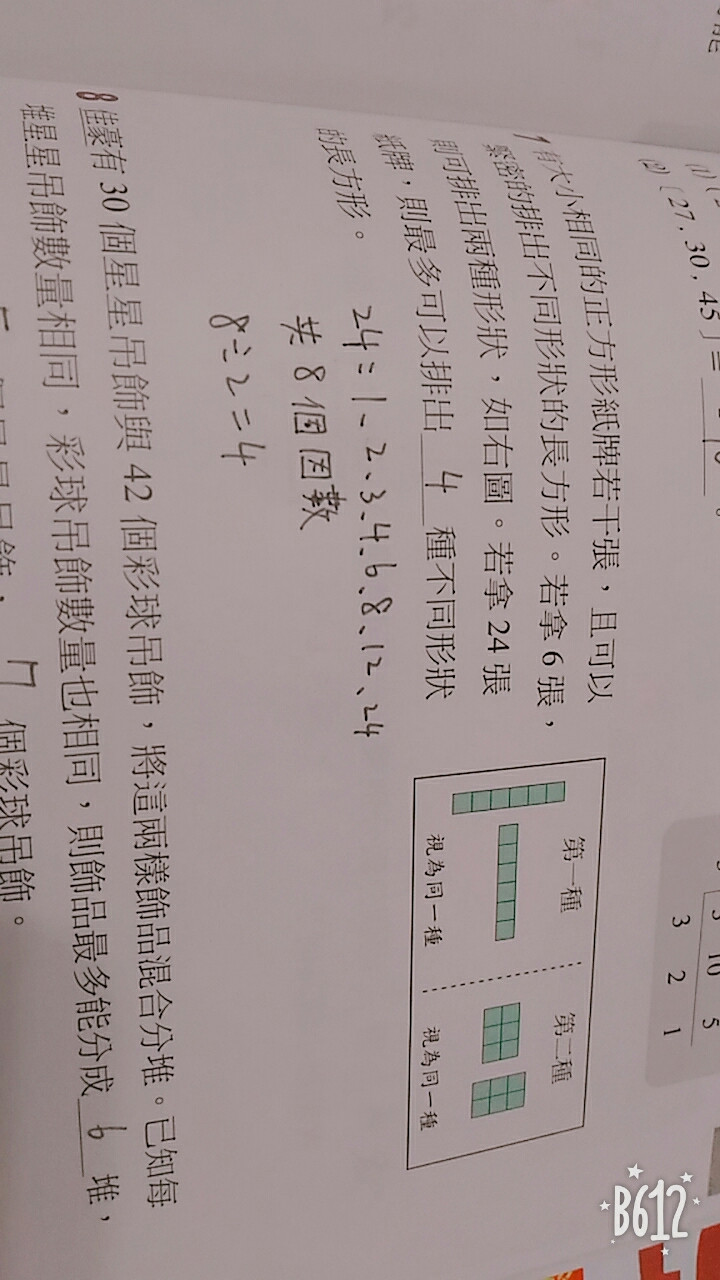 能
(1)
(2) [ 27 , 30 , 45 ] =
3 10 5
3 2 1
7 有大小相同的正方形紙牌若干張，且可以
緊密的排出不同形狀的長方形。若拿 6 張，
則可排出兩種形狀，如右圖。若拿 24 張
紙牌，則最多可以排出 4 種不同形狀
的長方形。
第一種 第二種
視為同一種 視為同一種
24=1、2、3、4、6、8、12、24
共8個因數
8÷2=4
8 佳豪有 30 個星星吊飾與 42 個彩球吊飾，將這兩樣飾品混合分堆。已知每
堆星星吊飾數量相同，彩球吊飾數量也相同，則飾品最多能分成 6 堆，
個星星吊飾、7 個彩球吊飾。
B612